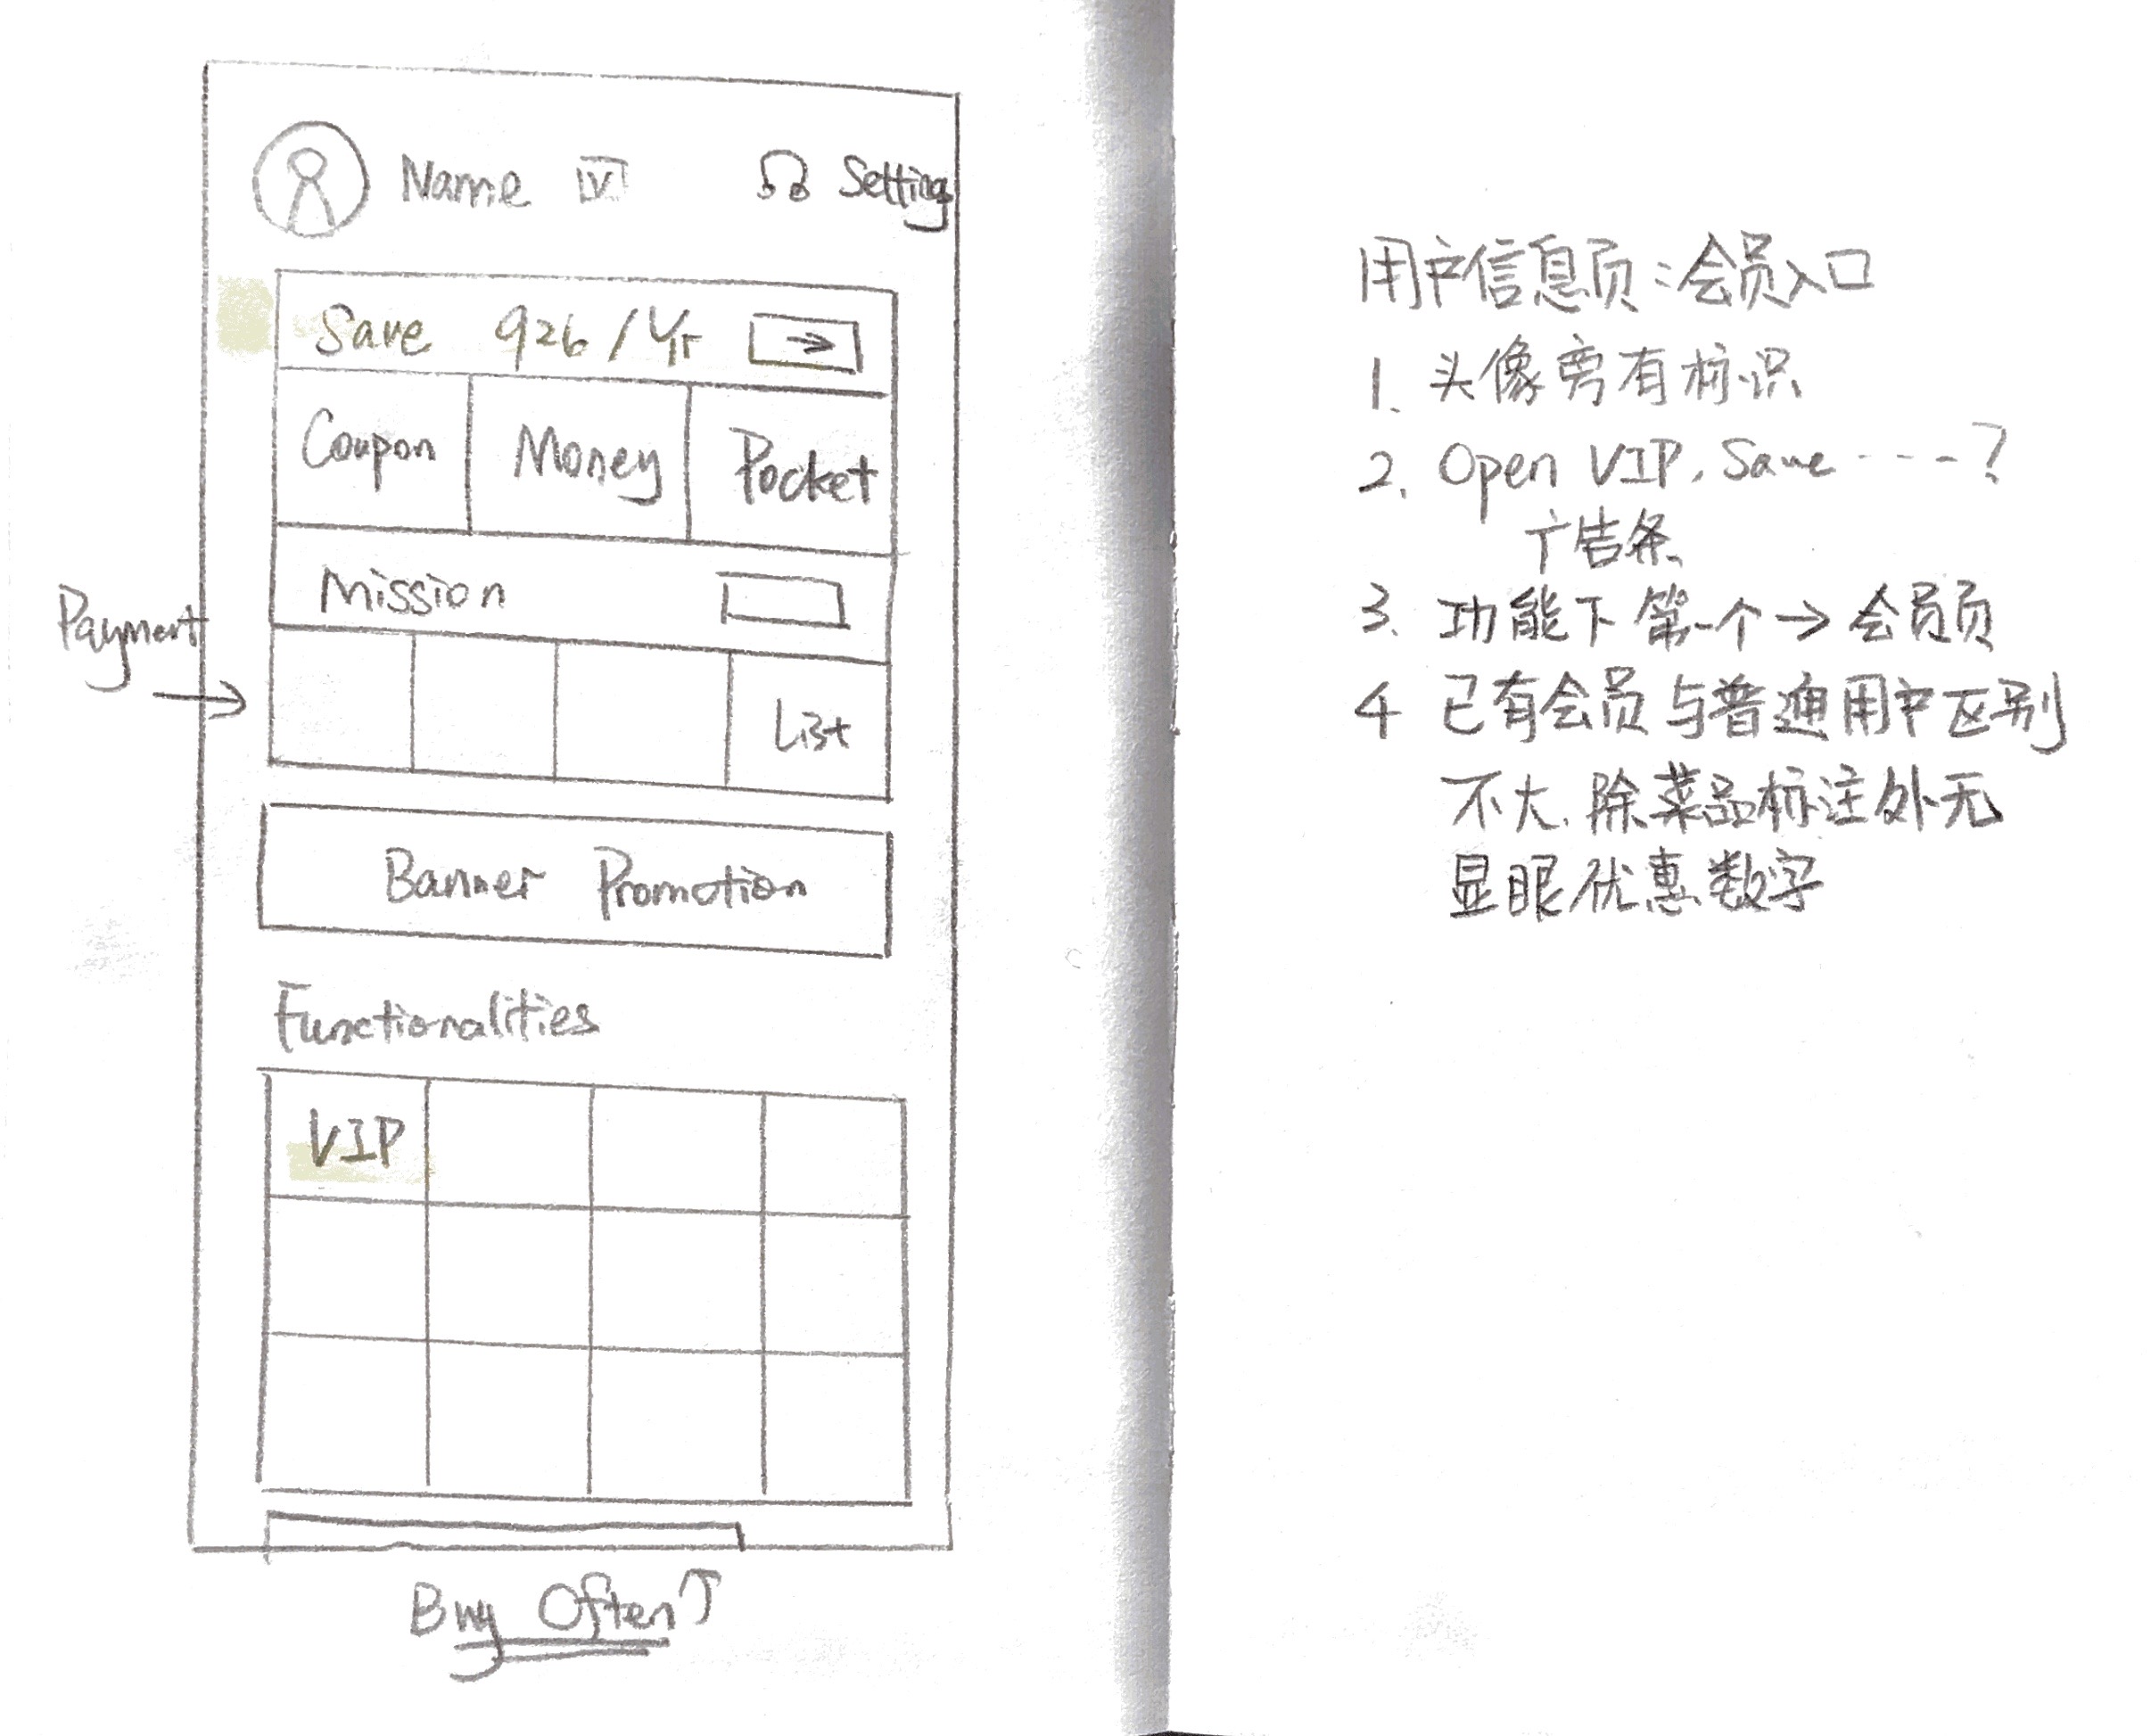 Name V Setting
Save 926/Yr →
Coupon Money Pocket
Mission
Payment →
List
Banner Promotion
Functionalities
VIP
Buy Often ↑
用户信息页:会员入口
1. 头像旁有标识
2. Open VIP, Save ----?
广告条
3. 功能下第一个→会员页
4 已有会员与普通用户区别
不大,除菜品标注外无
显眼优惠数字